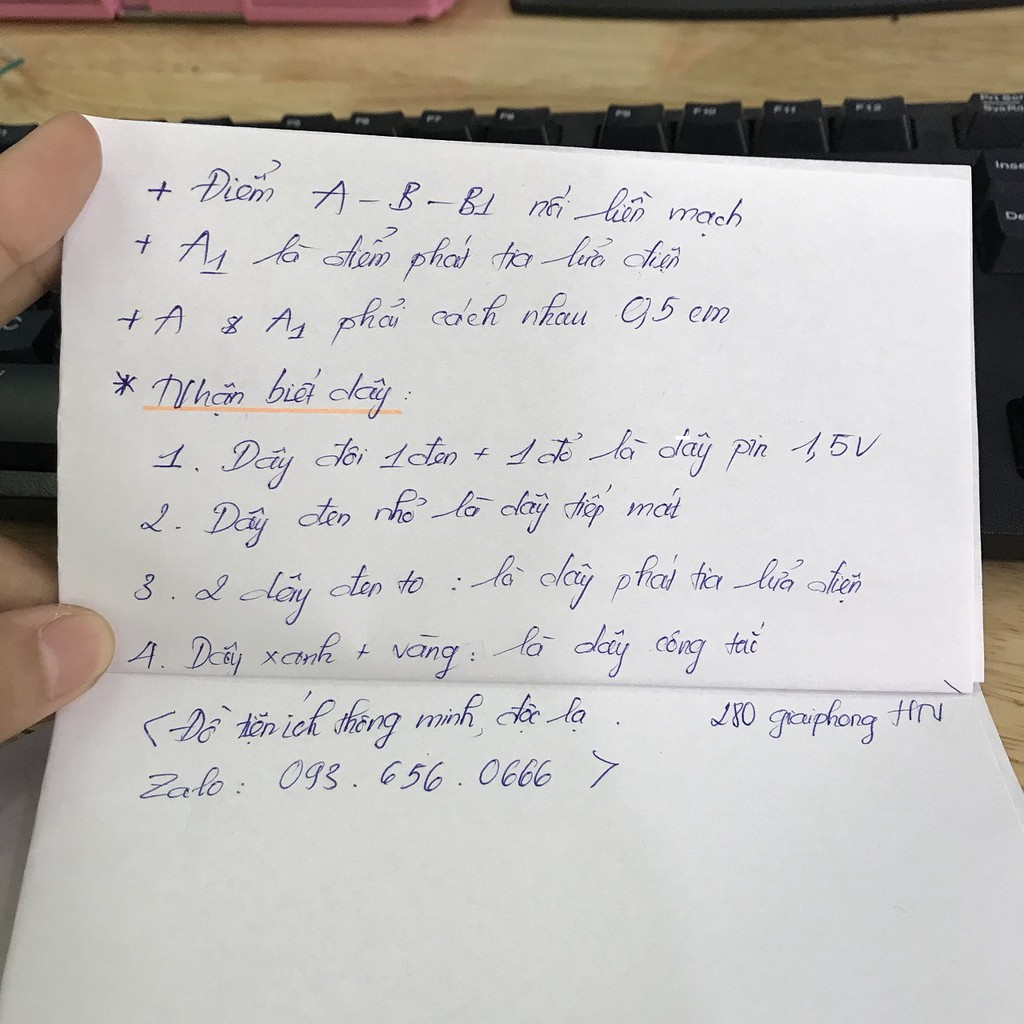 + Điểm A - B - B1 nối liền mạch
+ A1 là điểm phát tia lửa điện
+ A & A1 phải cách nhau 0,5 cm
* Nhận biết dây:
1. Dây đôi 1 đen + 1 đỏ là dây pin 1,5V
2. Dây đen nhỏ là dây tiếp mát
3. 2 dây đen to : là dây phát tia lửa điện
4. Dây xanh + vàng: là dây công tắc
< Đồ tiện ích thông minh, độc lạ . 280 giaiphong HN
Zalo: 093.656.0666 >
F7
F8
F9
F10
F11
F12
Prt Scr
SysRq
Inse
De